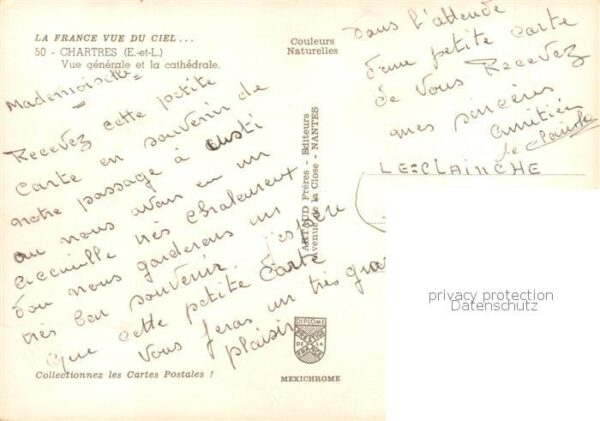 LA FRANCE VUE DU CIEL...
50 - CHARTRES (E.-et-L.)
Vue générale et la cathédrale.
Couleurs
Naturelles
Mademoiselle
Recevez cette petite
Carte en souvenir de
notre passage à
ou nous avons eu un
accueille très chaleureux
don nous garderons un
très bon souvenir j'espère
que cette petite Carte
vous feras un très gran
plaisir
Dans l'attende
d'une petite carte
de Vous Recevez
mes sincères
amitiés
LE CLAINCHE
ARTAUD Frères - Editeurs
Avenue de la Close - NANTES
privacy protection
Datenschutz
DIPLOME
PRESTIGE
DE LA
FRANCE
Collectionnez les Cartes Postales !
MEXICHROME